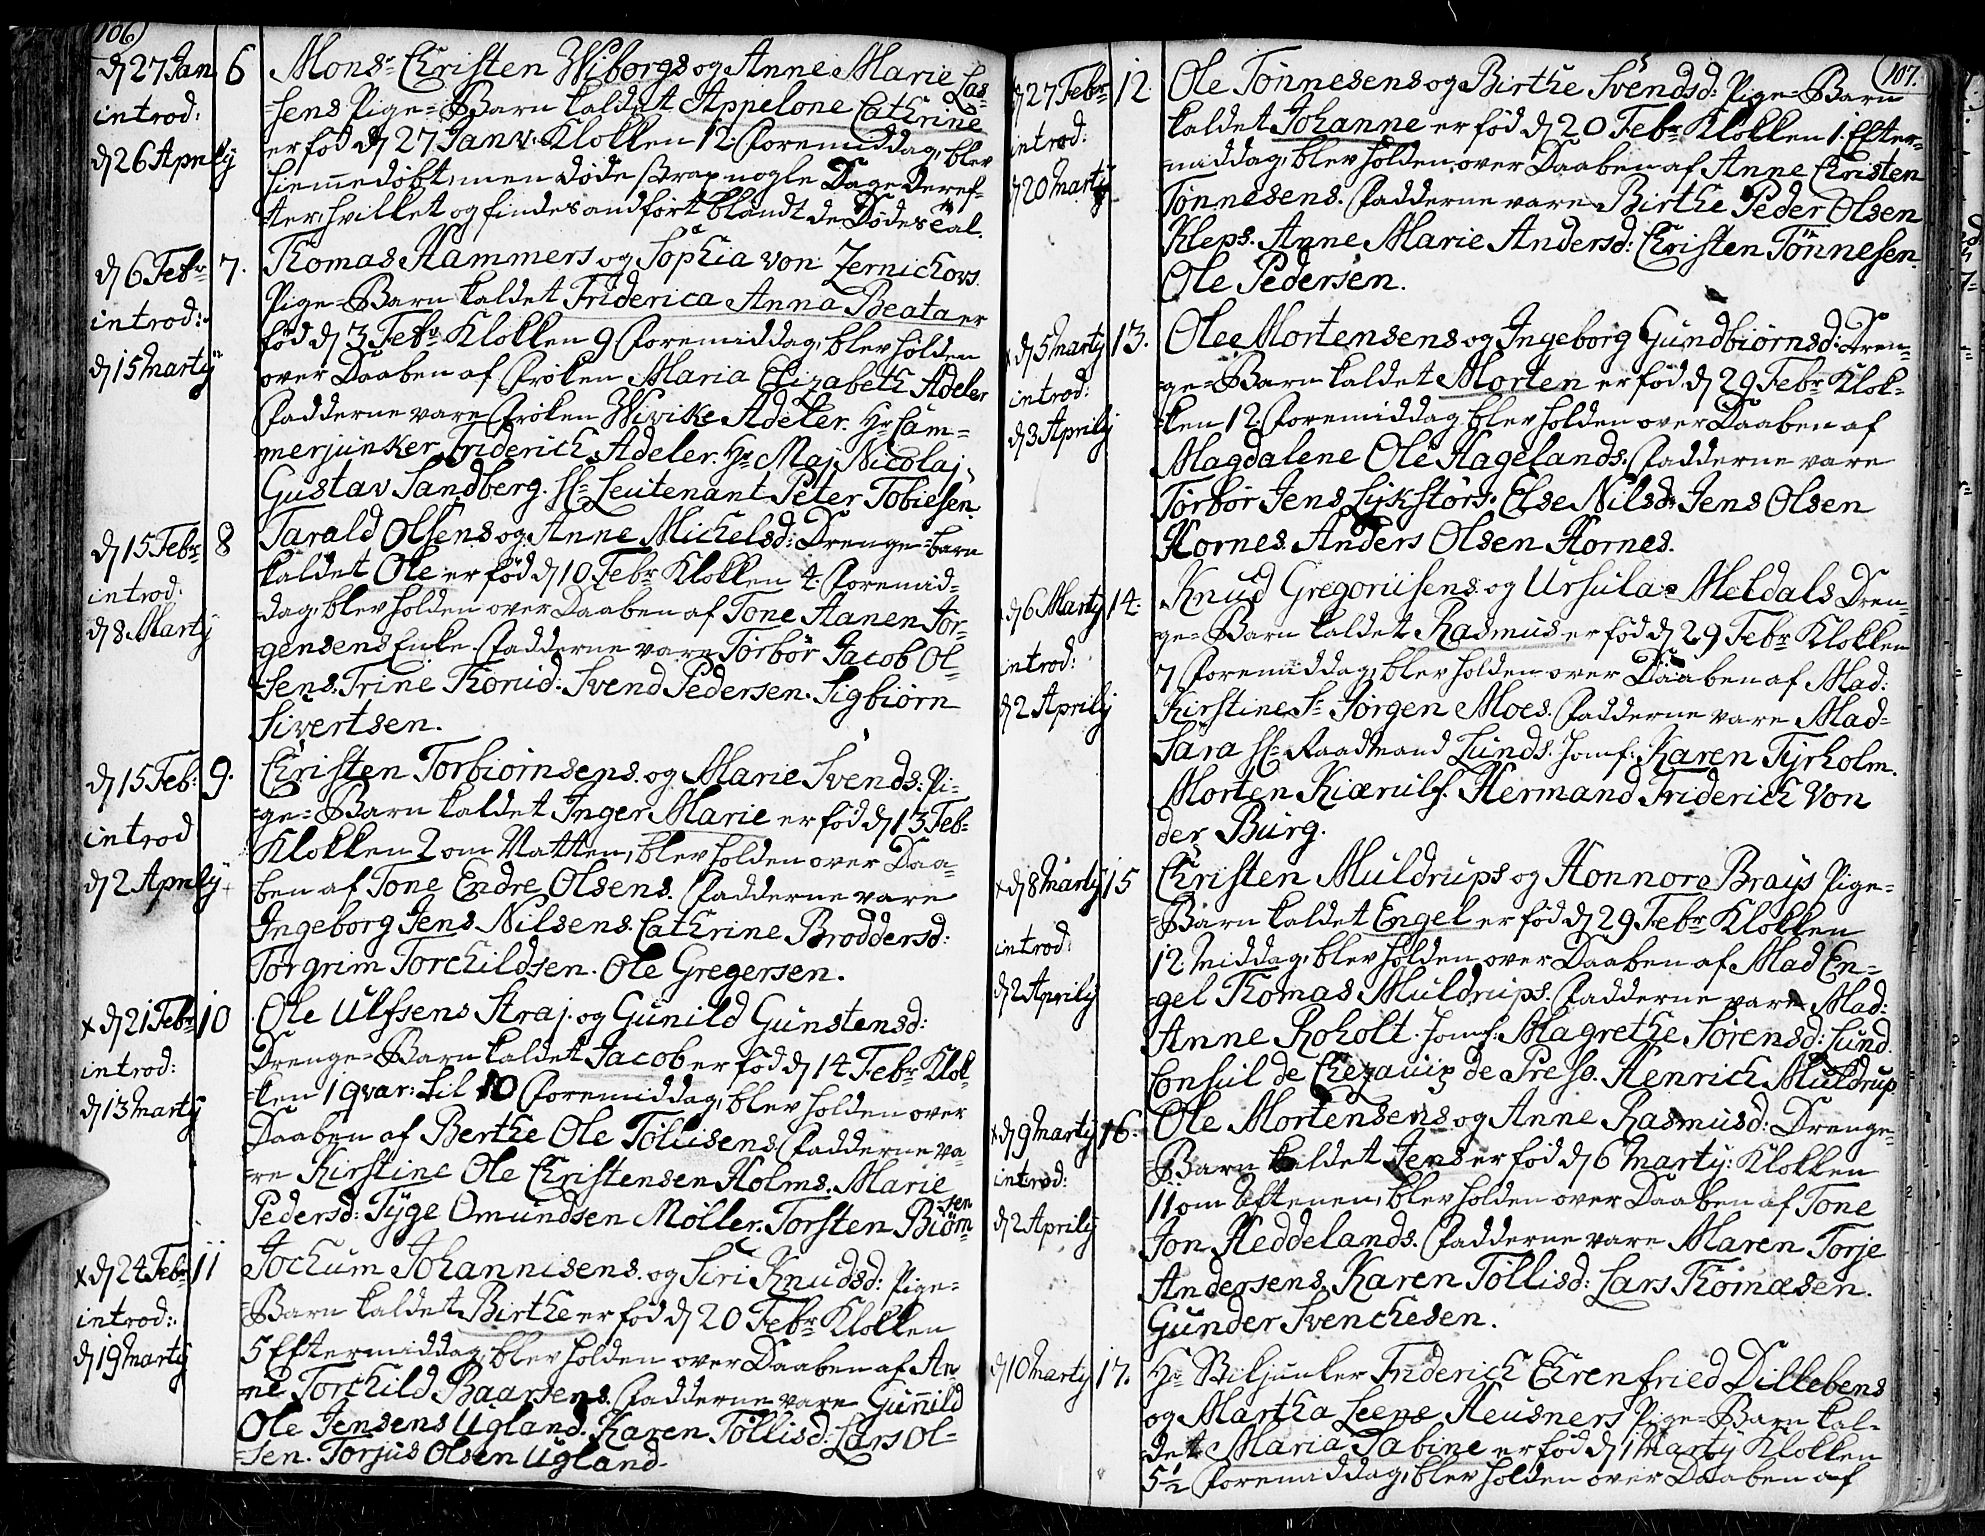 106
d 27 Jan 6 Mons. Christen Wiborgs og Anne Marie Las-
introd: sens Pige-Barn kaldet Appelone Cathrine
d 26 Aprily er fød d 27 Janv. Klokken 12. Formiddag, blev
hiemedøbt, men døde strax nogle Dage deref-
ter, hvilket og findes andført blandt de Dødes Cal.
d 6 Febr 7. Thomas Hammers og Sophia von Zernichovs
Pige-Barn kaldet Friderica Anna Beata er
introd: fød d 3 Febr Klokken 9 Formiddag, blev holden
d 15 Marty over Daaben af Frøken Maria Elizabeth Adeler
Fadderne vare Frøken Wivike Adeler. Hr Cam-
merjunker Friderich Adeler. Hr Maj. Nicolaj
Gustav Sandberg. Hr Leutenant Peter Tobiesen.
d 15 Febr 8 Tarald Olsens og Anne Michelsd: Drenge-barn
introd: kaldet Ole er fød d 10 Febr Klokken 4. Formid-
dag, blev holden over Daaben af Tone Hanen Jør-
d 8 Marty gensens Enke. Fadderne vare Torbør Jacob Ol-
sens. Trine Thorud. Svend Pedersen. Sigbiørn
Sivertsen.
d 15 Feb: 9. Christen Torbiørnsens og Marie Svends: Pi-
ge-Barn kaldet Inger Marie er fød d 13 Feb-
introd Klokken 2 om Natten, blev holden over Daa-
d 2 Aprily ben af Tone Endre Olsens. Fadderne vare
Ingeborg Jens Nilsens. Cathrine Broddersd:
Torgrim Torchildsen. Ole Gregersen.
x d 21 Febr 10 Ole Ulfsens Straj. og Gunild Gunstensd:
introd: Drenge-Barn kaldet Jacob er fød d 14 Febr Klok-
d 13 Marty ken 1 qvar: til 10 Formiddag, blev holden over
Daaben af Berthe Ole Tøllisens. Fadderne va-
re Kirstine Ole Christensen Holms. Marie
Pedersd: Tyge Omundsen Møller. Torsten Biørn-
sen
x d 24 Febr 11 Jochum Johannisens og Siri Knudsd: Pige-
introd: Barn kaldet Birthe er fød d 20 Febr Klokken
d 19 Marty 5 Eftermiddag, blev holden over Daaben af An-
ne Torchild Baarsens. Fadderne vare Gunild
Ole Jensens Ugland. Karen Tøllisd: Lars Ol-
sen. Torjus Olsen Ugland.
107.
d 27 Febr 12. Ole Tønnesens og Birthe Svendsd: Pige-Barn
introd: kaldet Johanne er fød d 20 Febr Klokken 1. Efter-
d 20 Marty middag, blev holden over Daaben af Anne Christen
Tønnesens. Fadderne vare Birthe Peder Olsen
Kleps. Anne Marie Andersd: Christen Tønnesen.
Ole Pedersen.
x d 5 Marty 13. Ole Mortensens og Ingeborg Gundbiørnsd: Dren-
introd: ge-Barn kaldet Morten er fød d 29 Febr Klok-
d 3 Aprily ken 12 Formiddag, blev holden over Daaben af
Magdalene Ole Hagelands. Fadderne vare
Torbør Jens Lykstørs. Else Nilsd: Jens Olsen
Hornes. Anders Olsen Hornes.
d 6 Marty 14. Knud Gregoriisens og Ursula Meldals Dren-
ge-Barn kaldet Rasmus er fød d 29 Febr Klokken
introd: 7 Formiddag, blev holden over Daaben af Mad:
d 2 Aprily Kirstine Sr Jørgen Moes. Fadderne vare Mad-
Sara Hr Raadmand Lunds. Jomf: Karen Tyrholm.
Morten Kiærulf. Hermand Friderich von
der Burg.
x d 8 Marty 15 Christen Muldrups og Honnore Brays Pige-
introd: Barn kaldet Engel er fød d 29 Febr Klokken
12 Middag, blev holden over Daaben af Mad En-
d 2 Aprily gel Thomas Muldrups. Fadderne vare Mad:
Anne Roholt. Jomf: Magrethe Sørensd: Lund.
Consul de Chezauiz de Preso. Henrich Muldrup.
x d 9 Marty 16. Ole Mortensens og Anne Rasmusd: Drenge-
introd: Barn kaldet Jens er fød d 6 Marty: Klokken
d 2 Aprily 11 om Aftenen, blev holden over Daaben af Tone
Jon Heddelands. Fadderne vare Maren Torje
Andersens. Karen Tøllisd: Lars Thomæsen.
Gunder Svenchesen.
d 10 Marty 17. Hr Vitjunker Friderich Ehrenfried Dillebens
og Martha Leene Heusners Pige-Barn kal-
det Maria Sabine er fød d 1 Marty Klokken
5½ Formiddag, blev holden over Daaben af